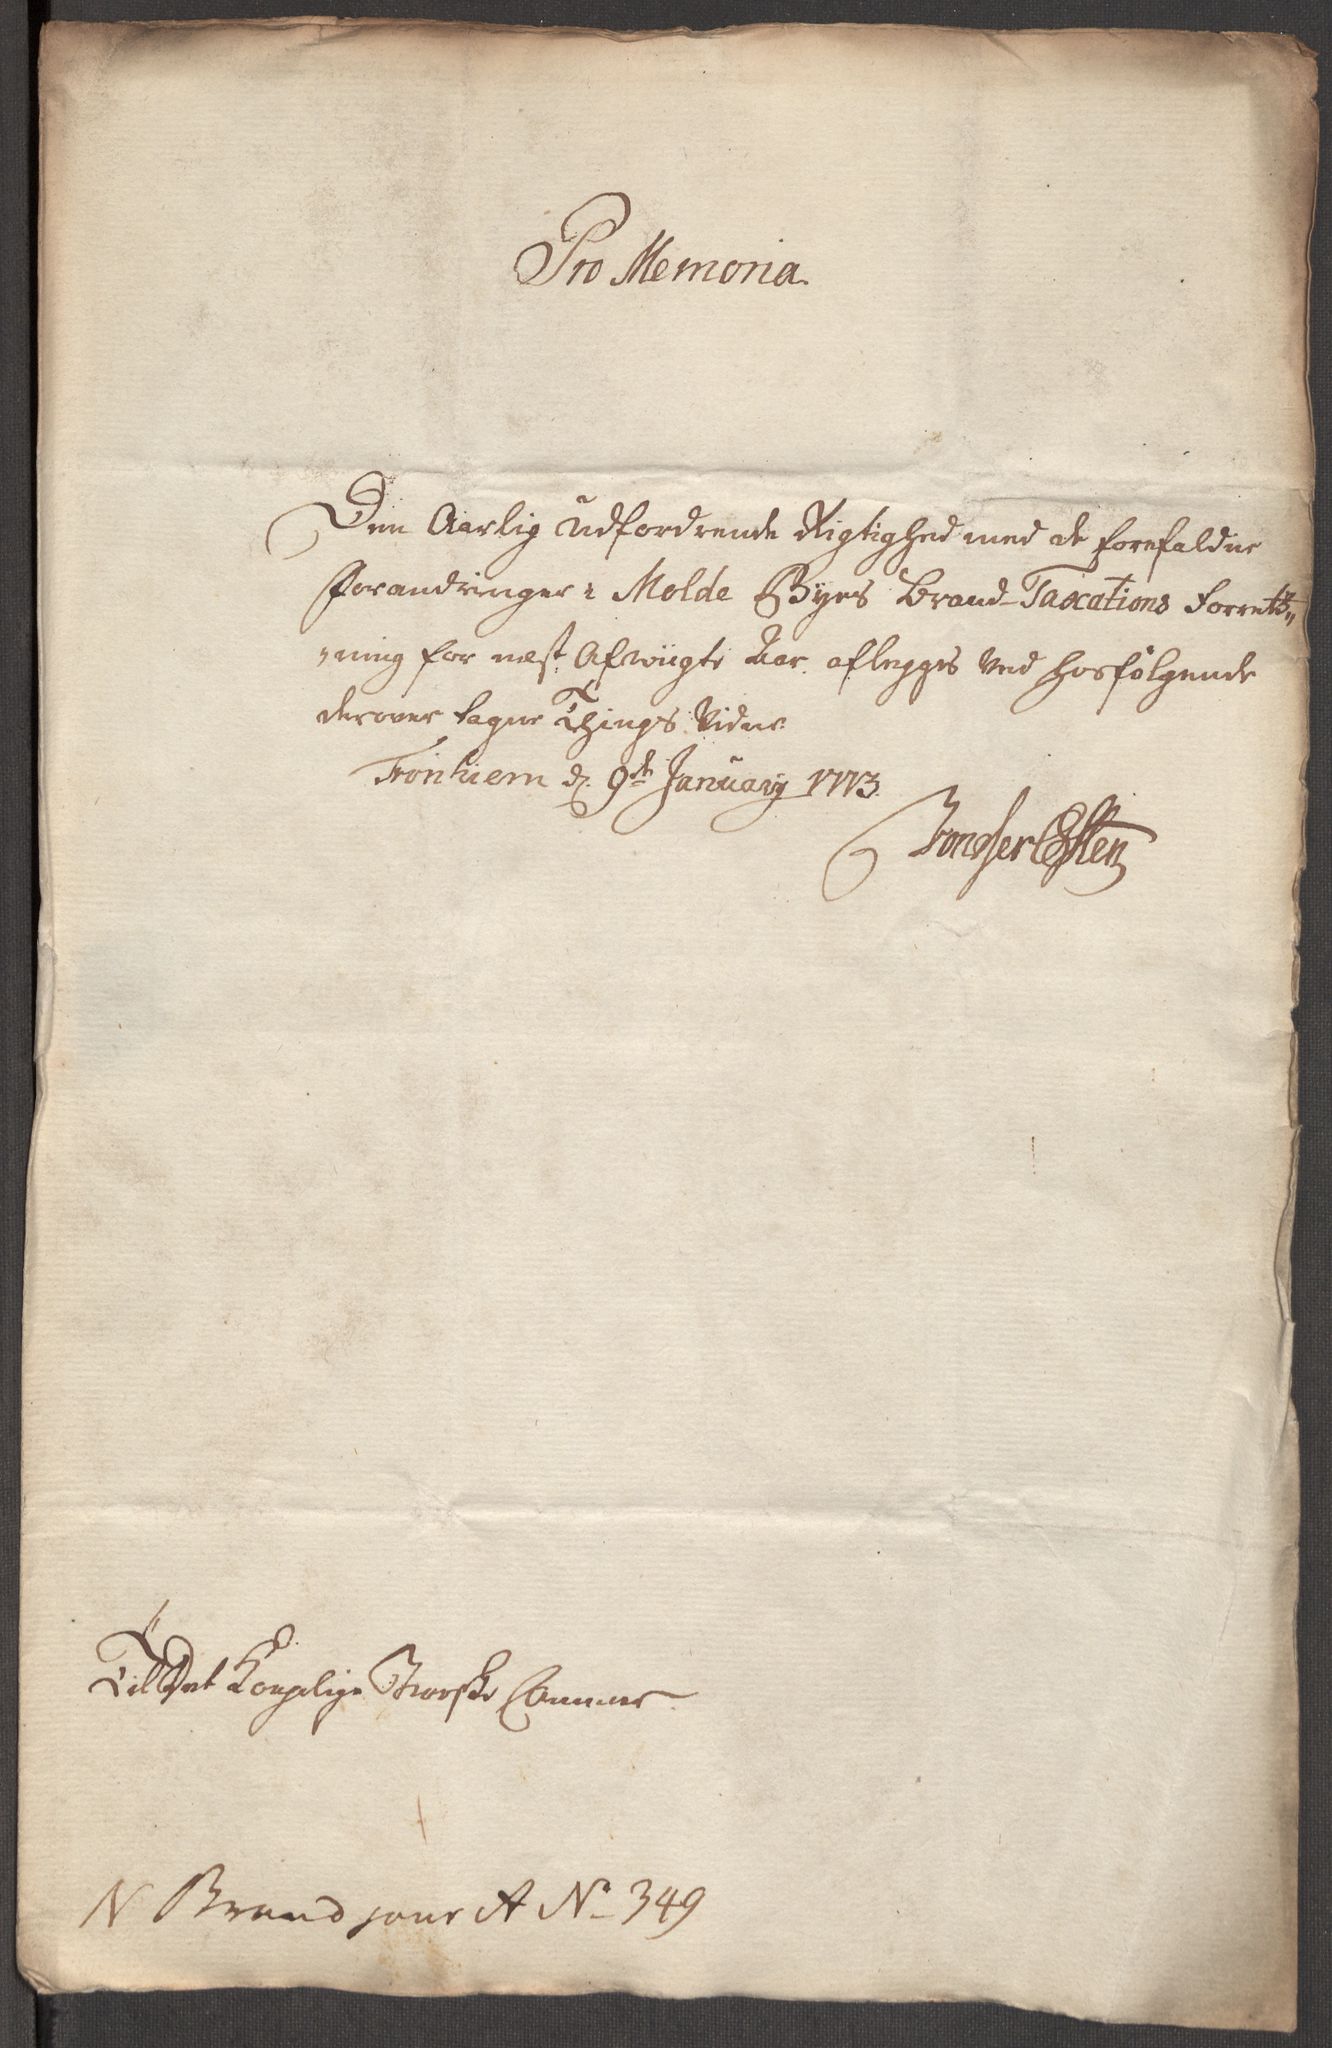 Pro Memoria.
Den Aarlig Udfordrende Rigtighed med de forefaldne
forandringer i Molde Byes Brand-Taxations Forretz„
„ning for næst Afvigte Aar aflegges ved hosfølgende
derover tagne Things Vidne.
Tronhiem d. 9de January 1773.
Til Det Kongelige Norske Cammer
N Brand jour A No 349